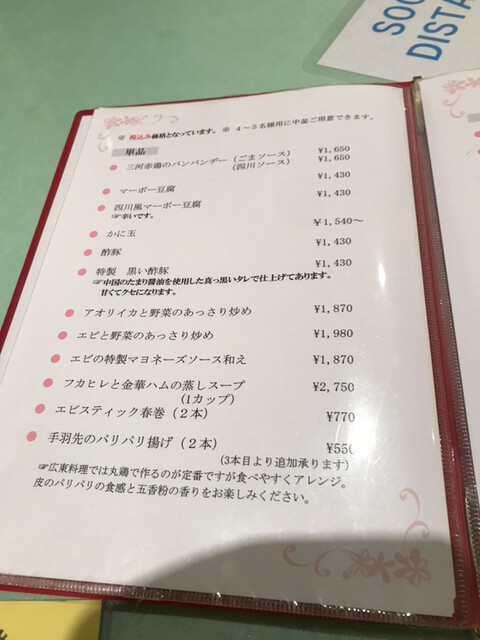 SOC
DISTA
※ 税込み価格となっています。 ※ 4～5名様用に中皿ご用意できます。
単品
三河赤鶏のバンバンヂー（ごまソース） ¥1,650
（四川ソース） ¥1,650
マーボー豆腐 ¥1,430
四川風マーボー豆腐 ¥1,430
☞辛いです。
かに玉 ¥1,540～
酢豚 ¥1,430
特製 黒い酢豚 ¥1,430
☞中国のたまり醤油を使用した真っ黒いタレで仕上げてあります。
甘くてクセになります。
アオリイカと野菜のあっさり炒め ¥1,870
エビと野菜のあっさり炒め ¥1,980
エビの特製マヨネーズソース和え ¥1,870
フカヒレと金華ハムの蒸しスープ ¥2,750
(1カップ)
エビスティック春巻（２本） ¥770
手羽先のパリパリ揚げ（２本） ¥550
(3本目より追加承ります)
☞広東料理では丸鶏で作るのが定番ですが食べやすくアレンジ。
皮のパリパリの食感と五香粉の香りをお楽しみください。